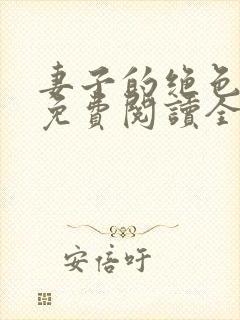 妻子的绝色
免費閱讀全
安倍吁